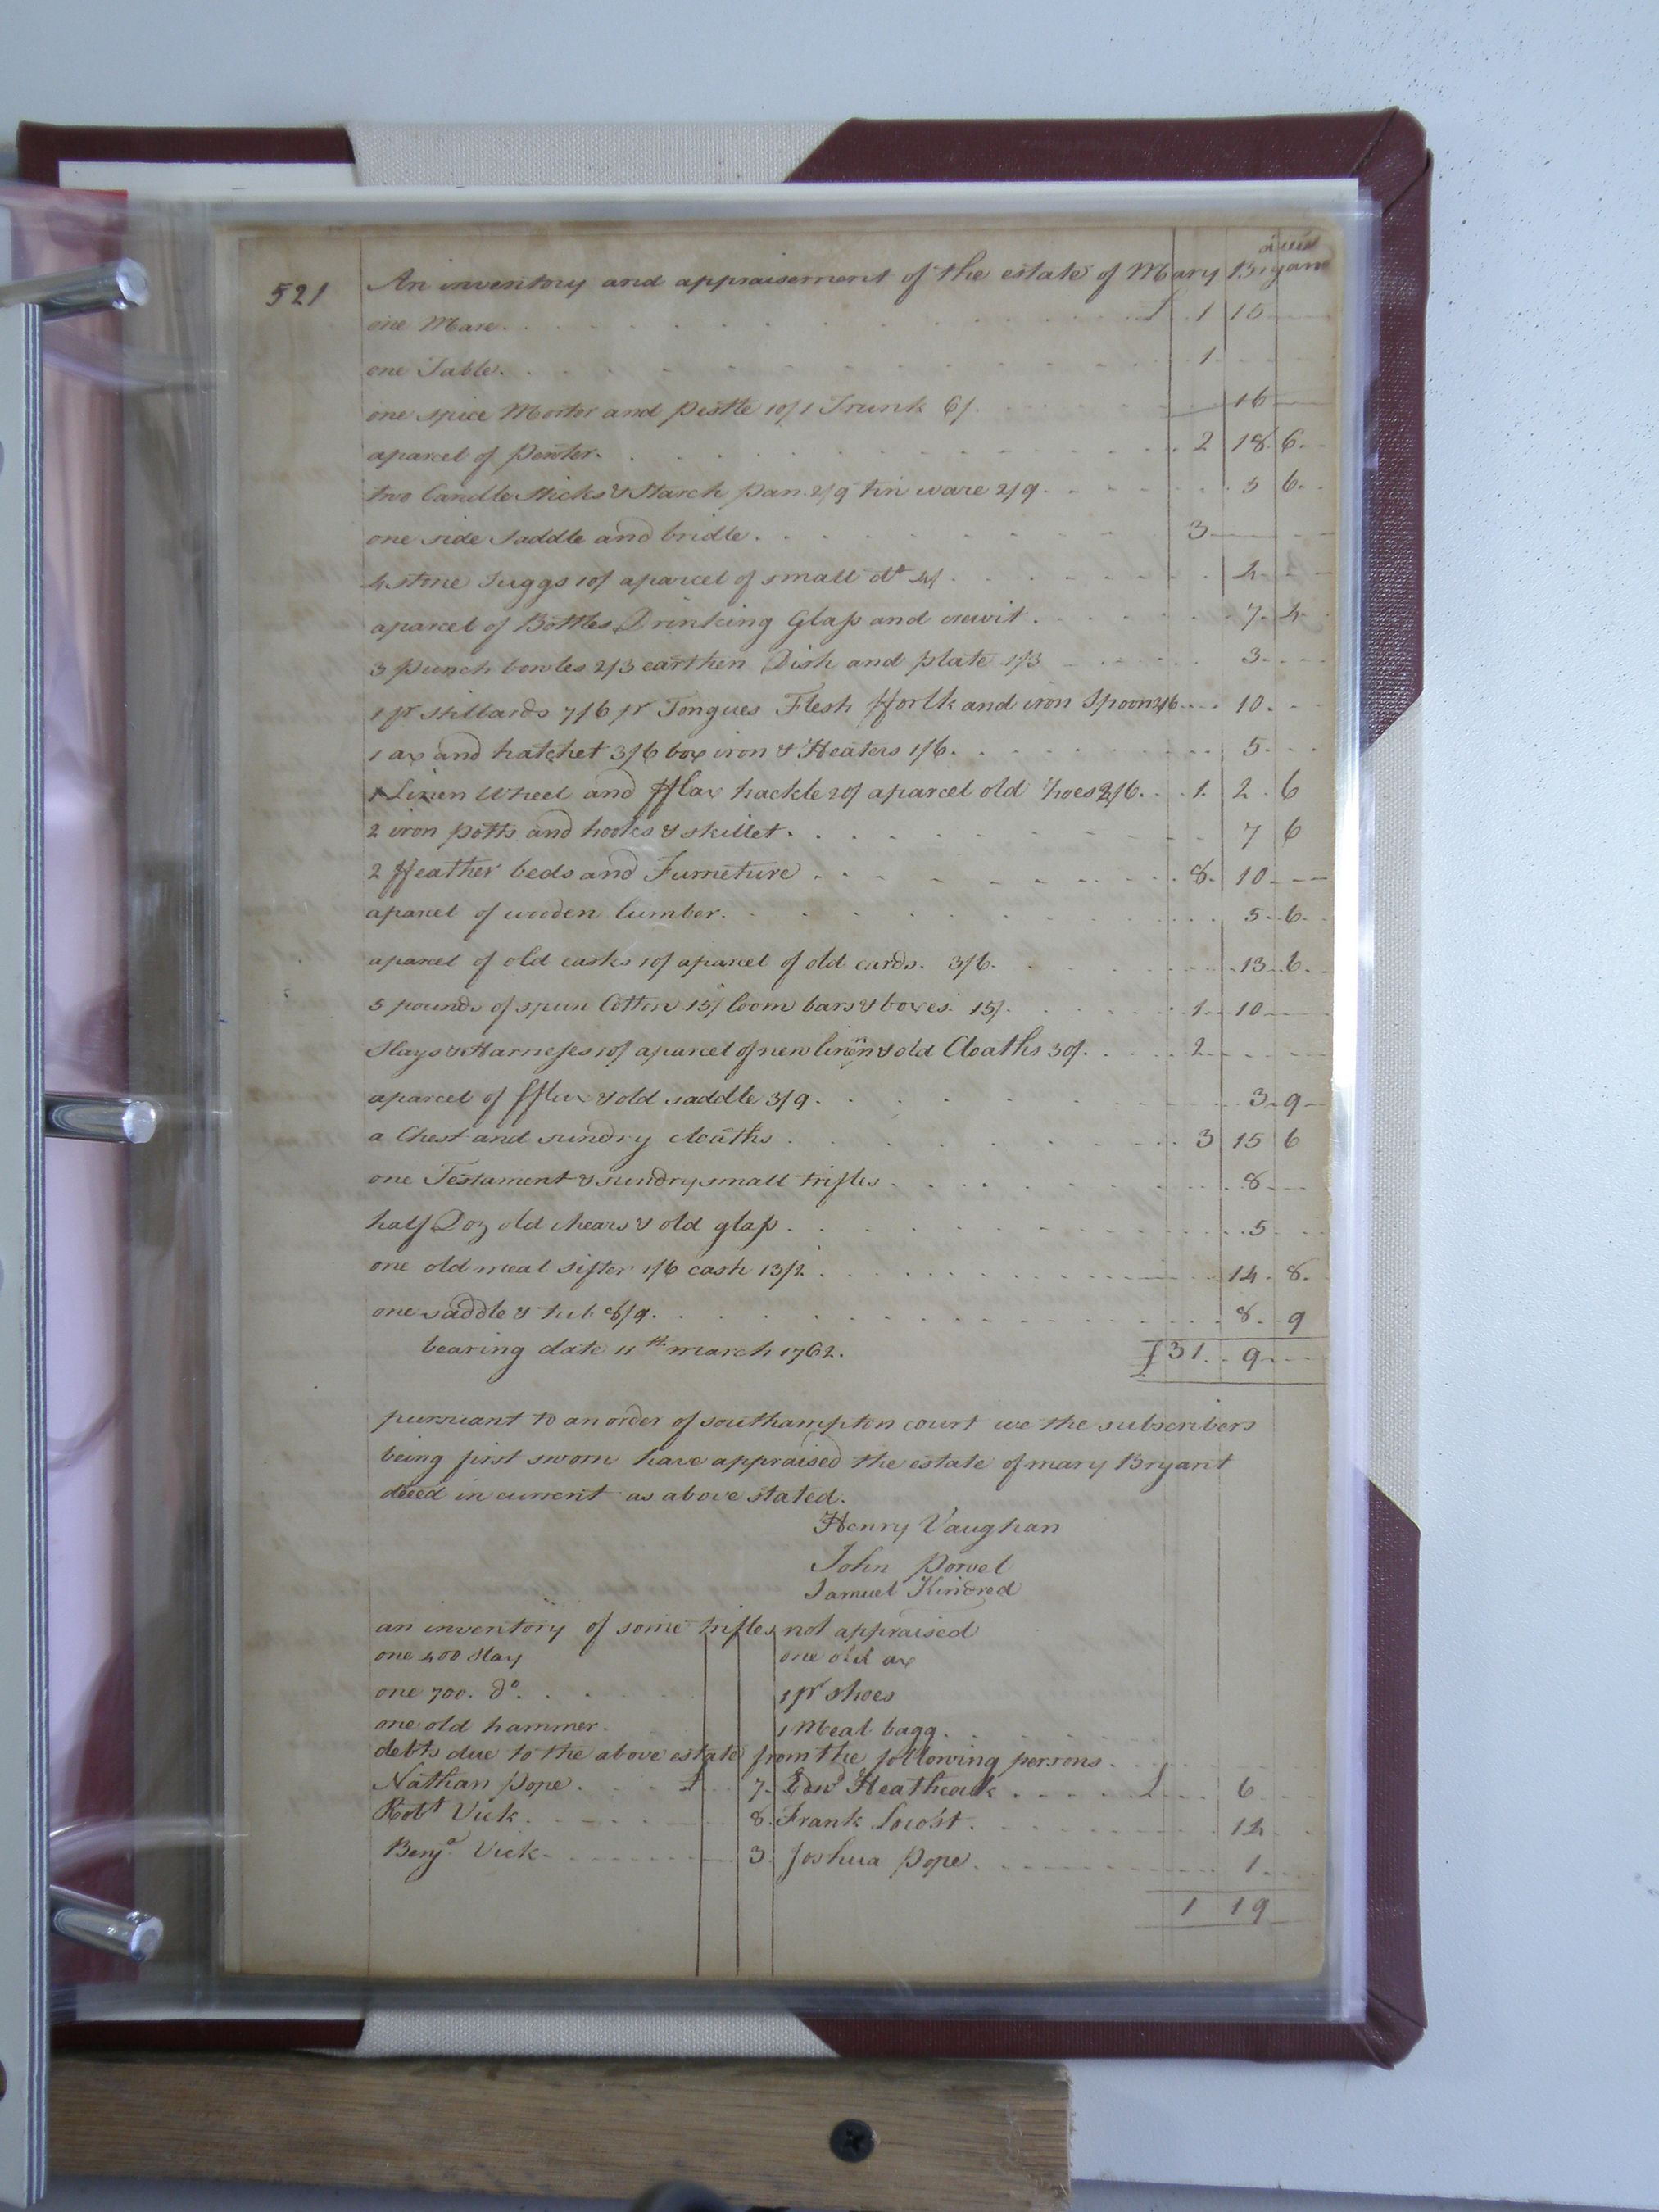 deced
521 An inventory and appraisement of the estate of Mary Bryant
one Mare. £ 1 15
one Table. 1
one spice Mortor and pestle 10/ 1 Trunk 6/. 16
aparcel of Pewter. 2 18 6
two Candle sticks & Starch pan 2/9 tin ware 2/9 5 6
one side saddle and bridle. 3
4 stone Juggs 10/ aparcel of small do 4/.
aparcel of Bottles Drinking Glass and crewit. 7 4
3 punch bowles 2/3 earthen Dish and plate 1/3 3
1 pr stillards 7/6 pr Tongues Flesh fforlk and iron Spoon 2/6 10
1 ax and hatchet 3/6 box iron & Heaters 1/6. 5
1 Linen Wheel and fflax hackle 20/ aparcel old hoes 2/6. 1 2 6
2 iron potts and hooks & skillet. 7 6
2 ffeather beds and Furneture 8 10
aparcel of wooden lumber. 5 6
aparcel of old casks 10/ aparcel of old cards. 3/6. 13 6
5 pounds of spun Cotton 15/ loom bars & boxes 15/. 1 10
Slays & Harnesses 10/ aparcel of new linen & old Cloaths 30/. 2
aparcel of fflax & old saddle 3/9. 3 9
a Chest and sundry cloaths. 3 15 6
one Testament & sundry small trifles. 8
half Doz old chears & old glass. 5
one old meal sifter 1/6 cash 13/2. 14 8
one saddle & tub 8/9. 8 9
bearing date 11th march 1762. £31 9
pursuant to an order of southampton court we the subscribers
being first sworn have appraised the estate of mary Bryant
deced in current as above stated.
Henry Vaughan
John powel
Samuel Kindred
an inventory of some trifles not appraised
one 400 slay one old ax
one 700. do. 1 pr shoes
one old hammer. 1 Meal bagg.
debts due to the above estate from the following persons.
Nathan pope. £ 7. Edwd Heathcock £ 6
Robt Vick. 8. Frank Locost. 12
Benja Vick 3 Joshua pope. 1
1 19